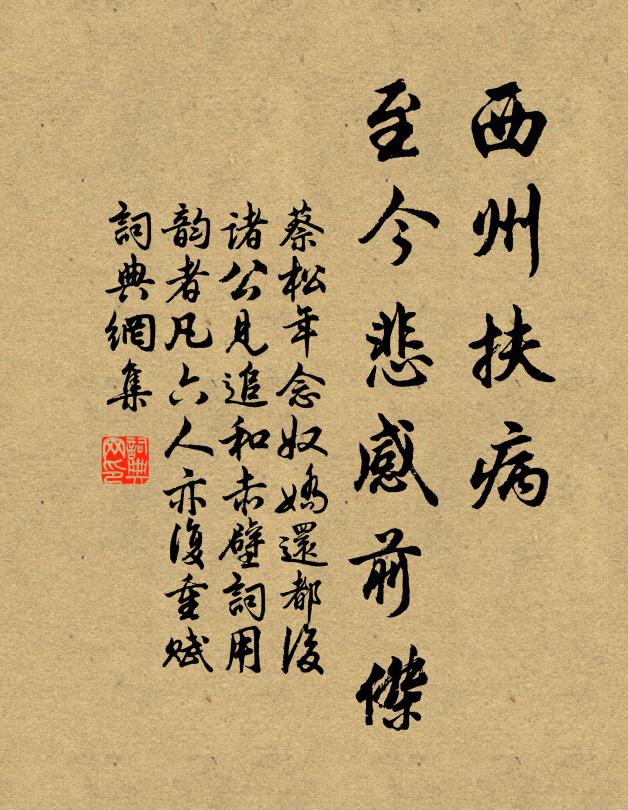 西州扶病
至今悲感前傑
蔡松年念奴嬌還都後
諸公見追和赤壁詞用
韵者凡六人亦復重賦
詞典網集
詞典网印